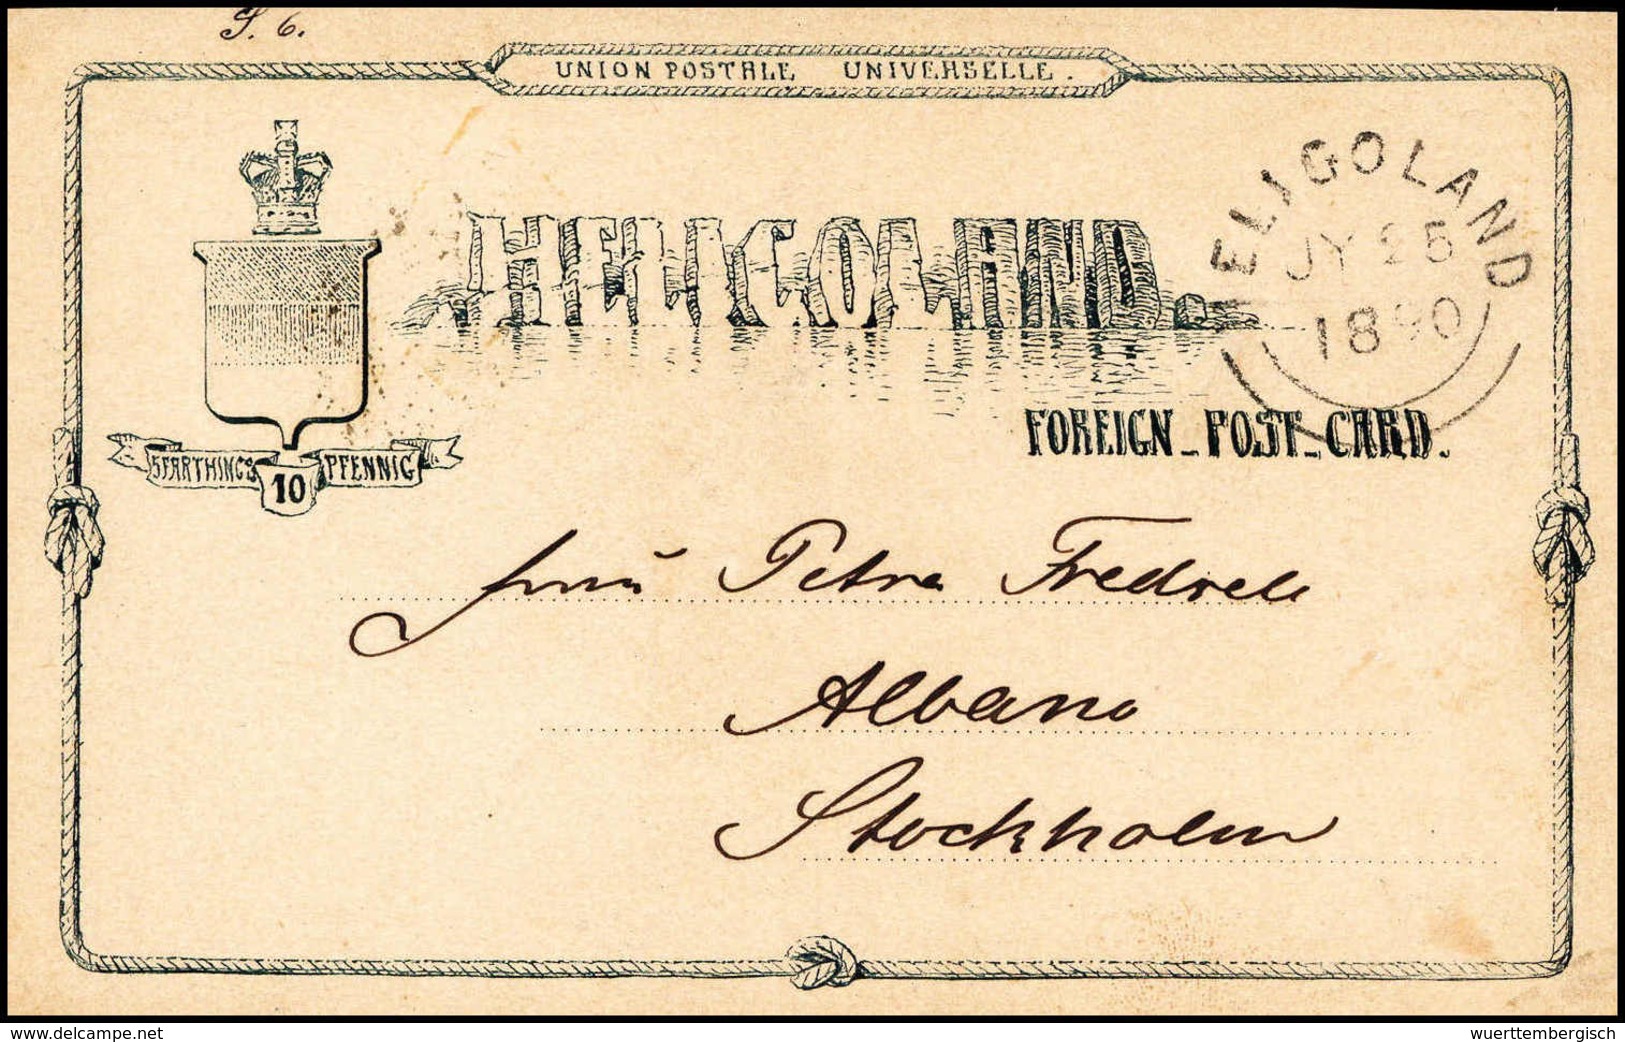 S. 6.
UNION POSTALE UNIVERSELLE.
HELIGOLAND
HELIGOLAND
JY 25
1890
FOREIGN_POST_CARD.
5 FARTHINGS 10 PFENNIG
Petra
Albano
Stockholm
www.delcampe.net
wuerttembergisch